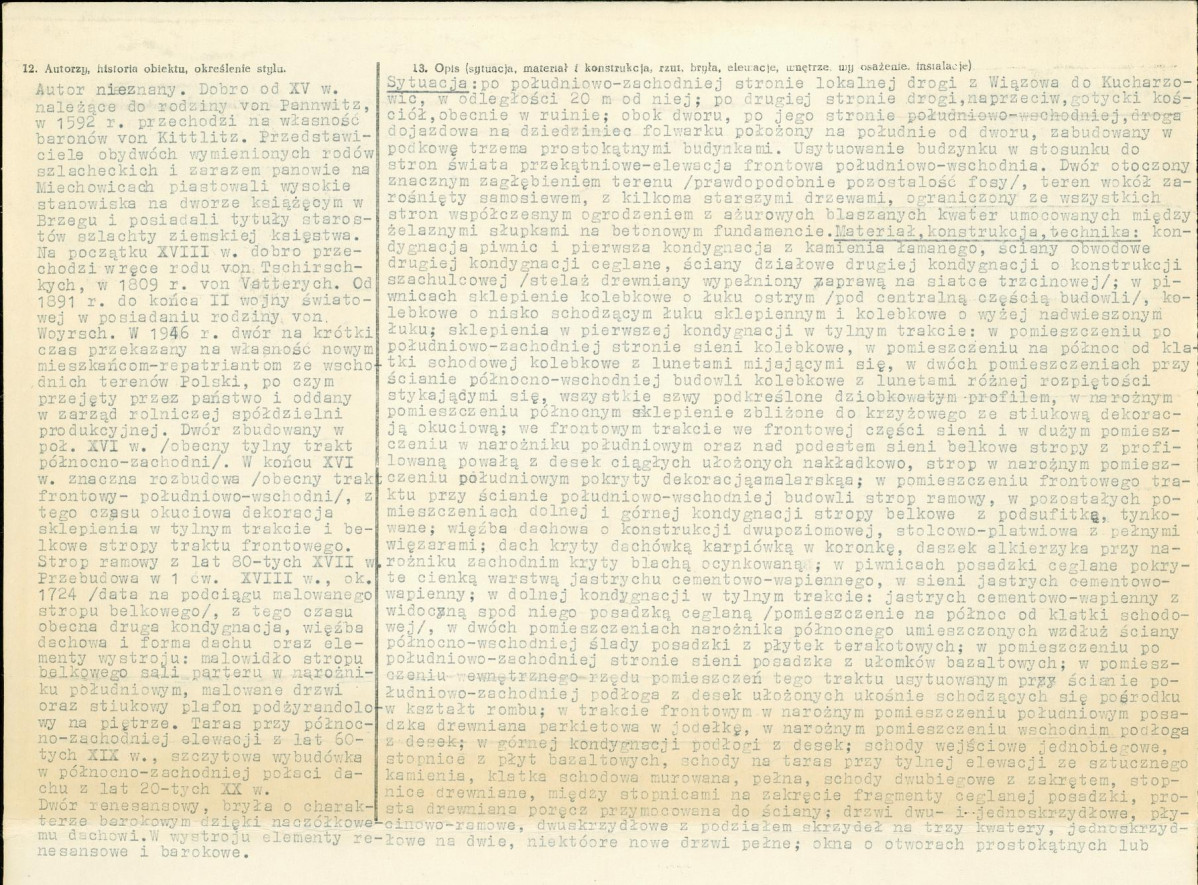 12. Autorzy, historia obiektu, określenie stylu.
Autor nieznany. Dobro od XV w.
należące do rodziny von Pannwitz,
w 1592 r. przechodzi na własność
baronów von Kittlitz. Przedstawi-
ciele obydwóch wymienionych rodów
szlacheckich i zarazem panowie na
Miechowicach piastowali wysokie
stanowiska na dworze książęcym w
Brzegu i posiadali tytuły staros-
tów szlachty ziemskiej księstwa.
Na początku XVIII w. dobro prze-
chodzi w ręce rodu von Tschirsch-
kych, w 1809 r. von Vatterych. Od
1891 r. do końca II wojny świato-
wej w posiadaniu rodziny von
Woyrsch. W 1946 r. dwór na krótki
czas przekazany na własność nowym
mieszkańcom-repatriantom ze wscho
dnich terenów Polski, po czym
przejęty przez państwo i oddany
w zarząd rolniczej spółdzielni
produkcyjnej. Dwór zbudowany w
poł. XVI w. /obecny tylny trakt
północno-zachodni/. W końcu XVI
w. znaczna rozbudowa /obecny trakt
frontowy- południowo-wschodni/, z
tego czasu okuciowa dekoracja
sklepienia w tylnym trakcie i be-
lkowe stropy traktu frontowego.
Strop ramowy z lat 80-tych XVII w.
Przebudowa w 1 ćw. XVIII w., ok.
1724 /data na podciągu malowanego
stropu belkowego/, z tego czasu
obecna druga kondygnacja, więźba
dachowa i forma dachu oraz ele-
menty wystroju: malowidło stropu
belkowego sali parteru w narożni-
ku południowym, malowane drzwi
oraz stiukowy plafon podżyrandolo
wy na piętrze. Taras przy północ-
no-zachodniej elewacji z lat 60-
tych XIX w., szczytowa wybudówka
w północno-zachodniej połaci da-
chu z lat 20-tych XX w.
Dwór renesansowy, bryła o charak-
terze barokowym dzięki naczółkowe-
mu dachowi.W wystroju elementy re-
nesansowe i barokowe.
13. Opis (sytuacja, materiał i konstrukcja, rzut, bryła, elewacje, wnętrze, wyposażenie, instalacje)
Sytuacja:po południowo-zachodniej stronie lokalnej drogi z Wiązowa do Kucharzo-
wic, w odległości 20 m od niej; po drugiej stronie drogi,naprzeciw,gotycki koś-
ciół,obecnie w ruinie; obok dworu, po jego stronie południowo-wschodniej,droga
dojazdowa na dziedziniec folwarku położony na południe od dworu, zabudowany w
podkowę trzema prostokątnymi budynkami. Usytuowanie budzynku w stosunku do
stron świata przekątniowe-elewacja frontowa południowo-wschodnia. Dwór otoczony
znacznym zagłębieniem terenu /prawdopodobnie pozostalość fosy/, teren wokół za-
rośnięty samosiewem, z kilkoma starszymi drzewami, ograniczony ze wszystkich
stron współczesnym ogrodzeniem z ażurowych blaszanych kwater umocowanych między
żelaznymi słupkami na betonowym fundamencie.Materiał,konstrukcja,technika: kon-
dygnacja piwnic i pierwsza kondygnacja z kamienia łamanego, ściany obwodowe
drugiej kondygnacji ceglane, ściany działowe drugiej kondygnacji o konstrukcji
szachulcowej /stelaż drewniany wypełniony zaprawą na siatce trzcinowej/; w pi-
wnicach sklepienie kolebkowe o łuku ostrym /pod centralną częścią budowli/, ko-
lebkowe o nisko schodzącym łuku sklepiennym i kolebkowe o wyżej nadwieszonym
łuku; sklepienia w pierwszej kondygnacji w tylnym trakcie: w pomieszczeniu po
południowo-zachodniej stronie sieni kolebkowe, w pomieszczeniu na północ od kla-
tki schodowej kolebkowe z lunetami mijającymi się, w dwóch pomieszczeniach przy
ścianie północno-wschodniej budowli kolebkowe z lunetami różnej rozpiętości
stykającymi się, wszystkie szwy podkreślone dziobkowatym profilem, w narożnym
pomieszczeniu północnym sklepienie zbliżone do krzyżowego ze stiukową dekorac-
ją okuciową; we frontowym trakcie we frontowej części sieni i w dużym pomiesz-
czeniu w narożniku południowym oraz nad podestem sieni belkowe stropy z profi-
lowaną powałą z desek ciągłych ułożonych nakładkowo, strop w narożnym pomiesz-
czeniu południowym pokryty dekoracjąamalarskąa; w pomieszczeniu frontowego tra-
ktu przy ścianie południowo-wschodniej budowli strop ramowy, w pozostałych po-
mieszczeniach dolnej i górnej kondygnacji stropy belkowe z podsufitką, tynko-
wane; więźba dachowa o konstrukcji dwupoziomowej, stolcowo-płatwiowa z pełnymi
więzarami; dach kryty dachówką karpiówką w koronkę, daszek alkierzyka przy na-
rożniku zachodnim kryty blachą ocynkowaną ; w piwnicach posadzki ceglane pokry-
te cienką warstwą jastrychu cementowo-wapiennego, w sieni jastrych cementowo-
wapienny; w dolnej kondygnacji w tylnym trakcie: jastrych cementowo-wapienny z
widoczną spod niego posadzką ceglaną /pomieszczenie na północ od klatki schodo-
wej/, w dwóch pomieszczeniach narożnika północnego umieszczonych wzdłuż ściany
północno-wschodniej ślady posadzki z płytek terakotowych; w pomieszczeniu po
południowo-zachodniej stronie sieni posadzka z ułomków bazaltowych; w pomiesz-
czeniu wewnętrznego rzędu pomieszczeń tego traktu usytuowanym przy ścianie po-
łudniowo-zachodniej podłoga z desek ułożonych ukośnie schodzących się pośrodku
w kształt rombu; w trakcie frontowym w narożnym pomieszczeniu południowym posa-
dzka drewniana parkietowa w jodełkę, w narożnym pomieszczeniu wschodnim podłoga
z desek; w górnej kondygnacji podłogi z desek; schody wejściowe jednobiegowe,
stopnice z płyt bazaltowych, schody na taras przy tylnej elewacji ze sztucznego
kamienia, klatka schodowa murowana, pełna, schody dwubiegowe z zakrętem, stop-
nice drewniane, między stopnicami na zakręcie fragmenty ceglanej posadzki, pro-
sta drewniana poręcz przymocowana do ściany; drzwi dwu- i jednoskrzydłowe, pły-
cinowo-ramowe, dwuskrzydłowe z podziałem skrzydeł na trzy kwatery, jednoskrzyd-
łowe na dwie, niektóre nowe drzwi pełne; okna o otworach prostokątnych lub